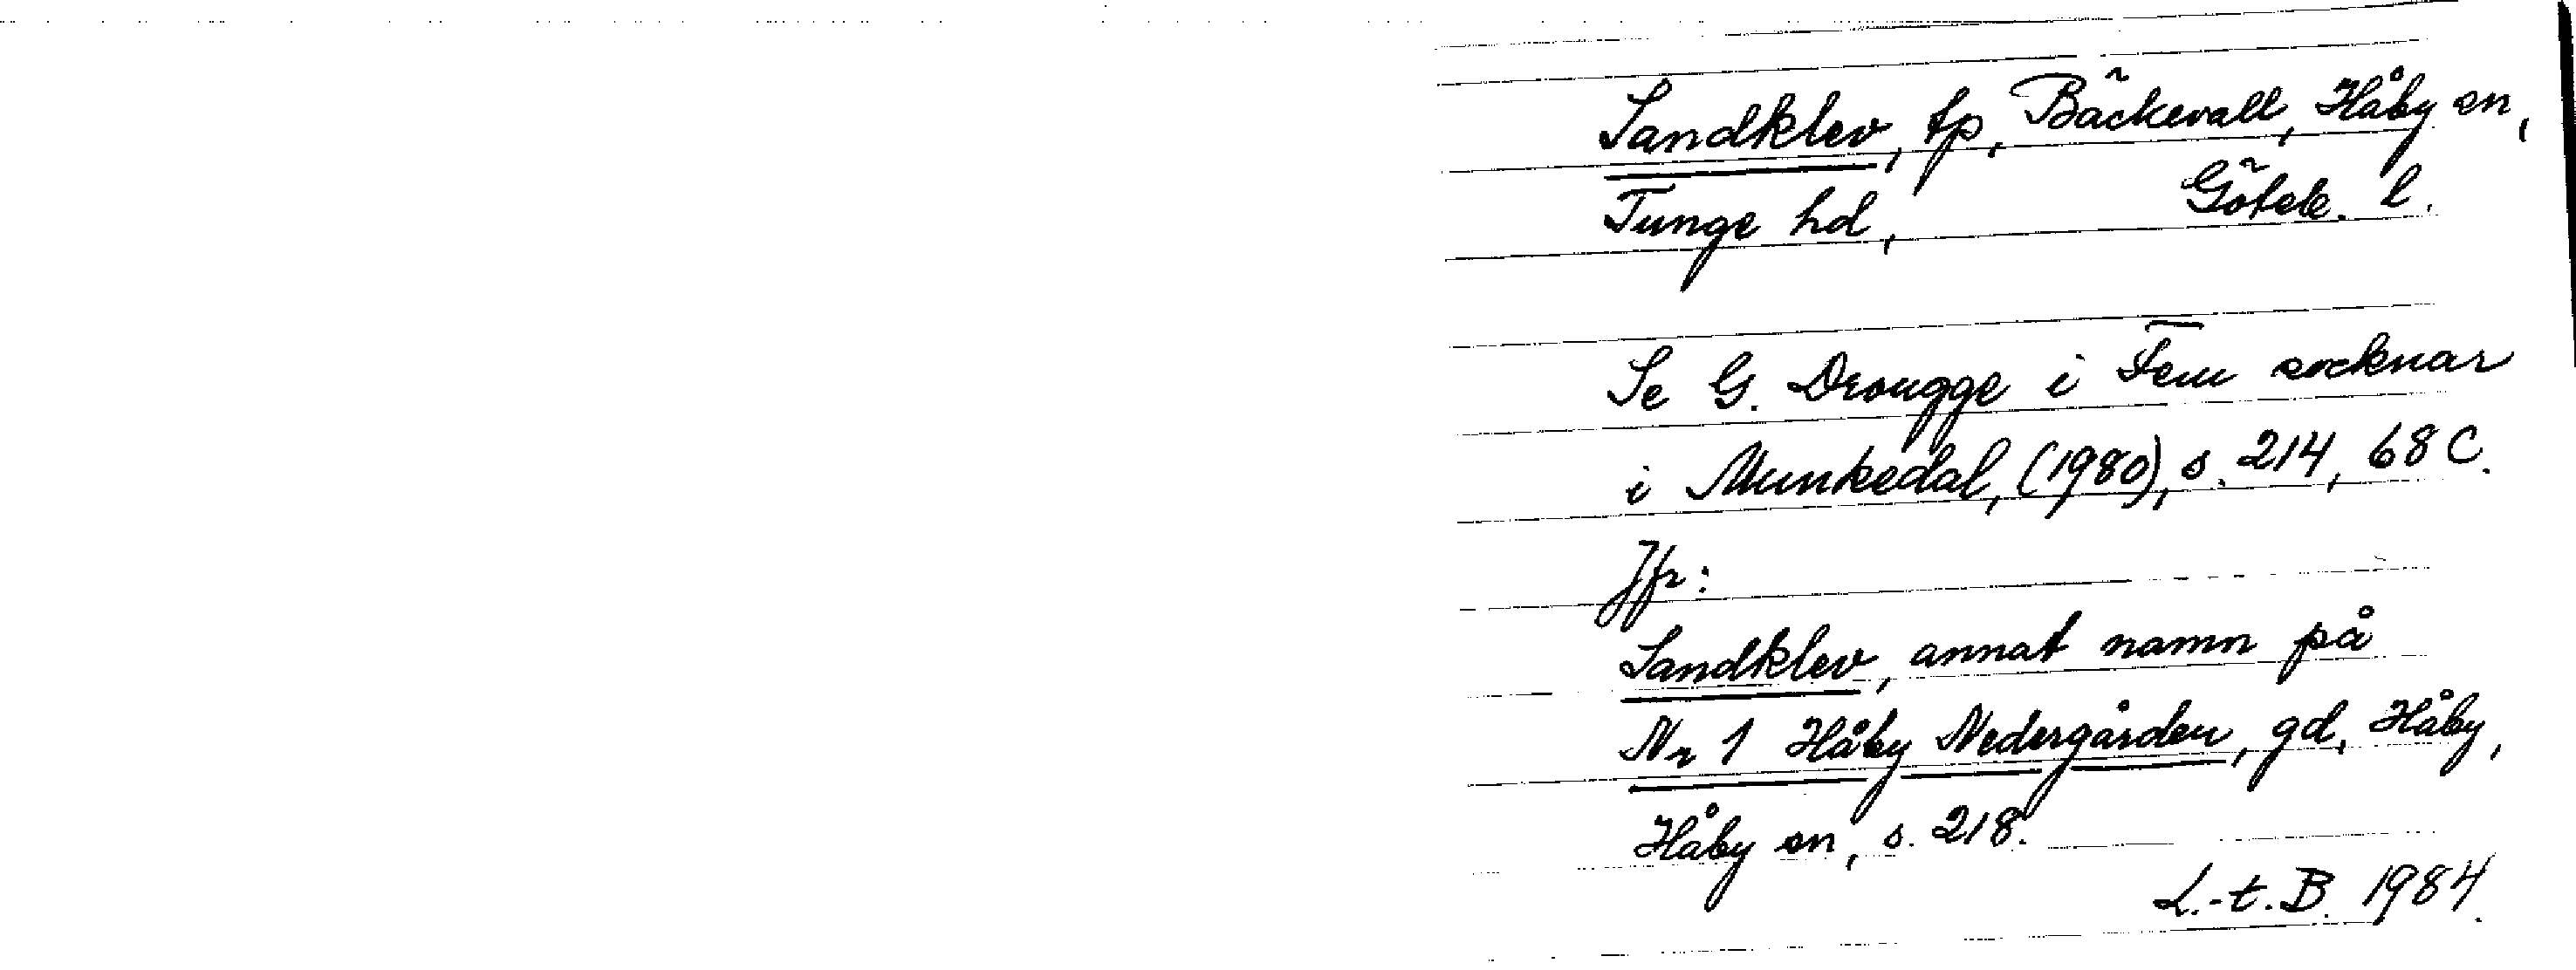 Sandklev, tp, Bäckevall, Håby sn,
Tunge hd, Göteb. l.
Se G. Drougge i Fem socknar
i Munkedal, (1980), s. 214, 68 C.
Jfr:
Sandklev, annat namn på
Nr 1 Håby Nedergården, gd, Håby,
Håby sn, s. 218.
L.-t. B. 1984.